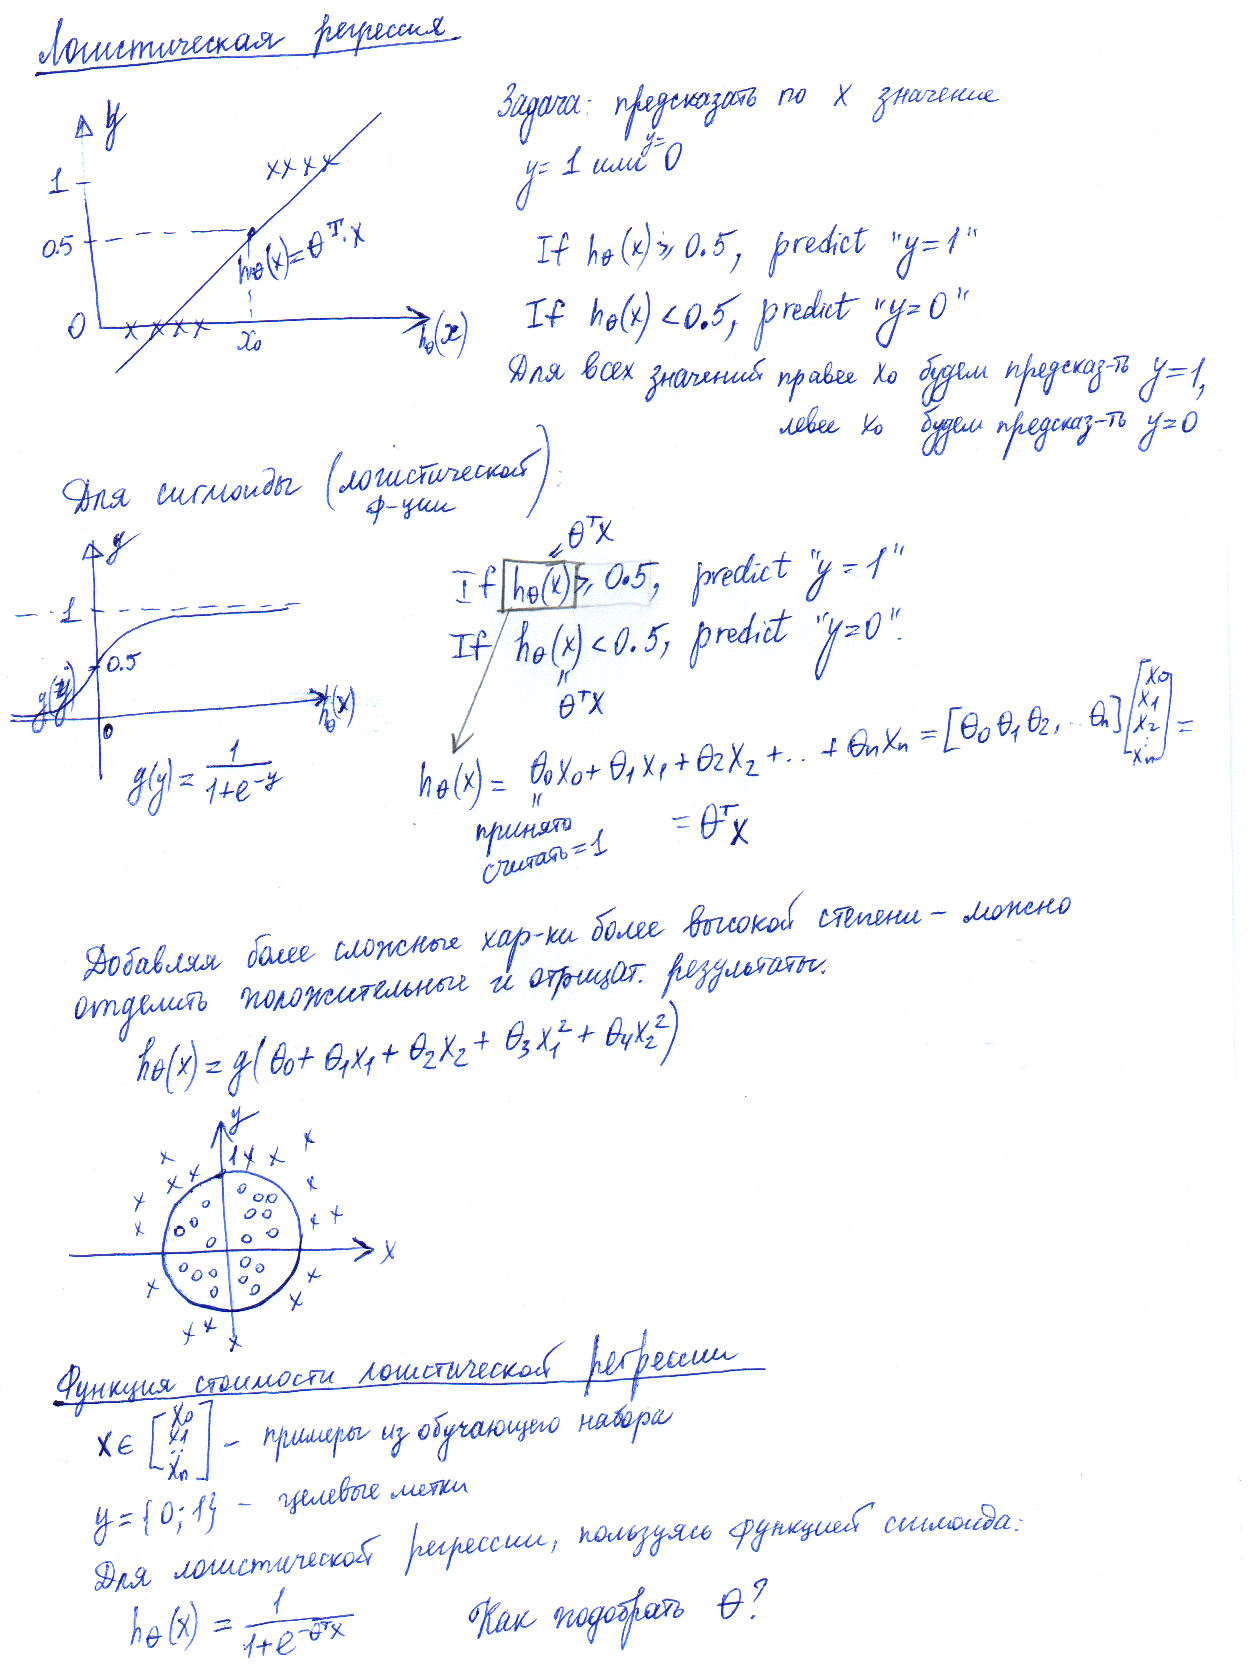 Логистическая регрессия
y
1
0.5
0
x₀
h_θ(x)
h_θ(x)=θᵀ·x
Задача: предсказать по x значение
y=1 или y=0
If h_θ(x)≥0.5, predict "y=1"
If h_θ(x)<0.5, predict "y=0"
Для всех значений правее x₀ будем предсказ-ть y=1,
левее x₀ будем предсказ-ть y=0
Для сигмоиды (логистической
ф-ции):
y
1
0.5
0
h_θ(x)
g(y)=1/(1+e^(-y))
θᵀx
If h_θ(x)≥0.5, predict "y=1"
If h_θ(x)<0.5, predict "y=0".
θᵀx
h_θ(x)=θ₀x₀+θ₁x₁+θ₂x₂+...+θₙxₙ=[θ₀ θ₁ θ₂,...θₙ][x₀ x₁ x₂ : xₙ]=
принято
считать=1
=θᵀx
Добавляя более сложные хар-ки более высокой степени – можно
отделить положительные и отрицат. результаты.
h_θ(x)=g(θ₀+θ₁x₁+θ₂x₂+θ₃x₁²+θ₄x₂²)
y
1
x
Функция стоимости логистической регрессии
x∈[x₀ x₁ .. xₙ] – примеры из обучающего набора
y={0;1} – целевые метки
Для логистической регрессии, пользуясь функцией сигмоида:
h_θ(x)=1/(1+e^(-θᵀx)) Как подобрать θ?